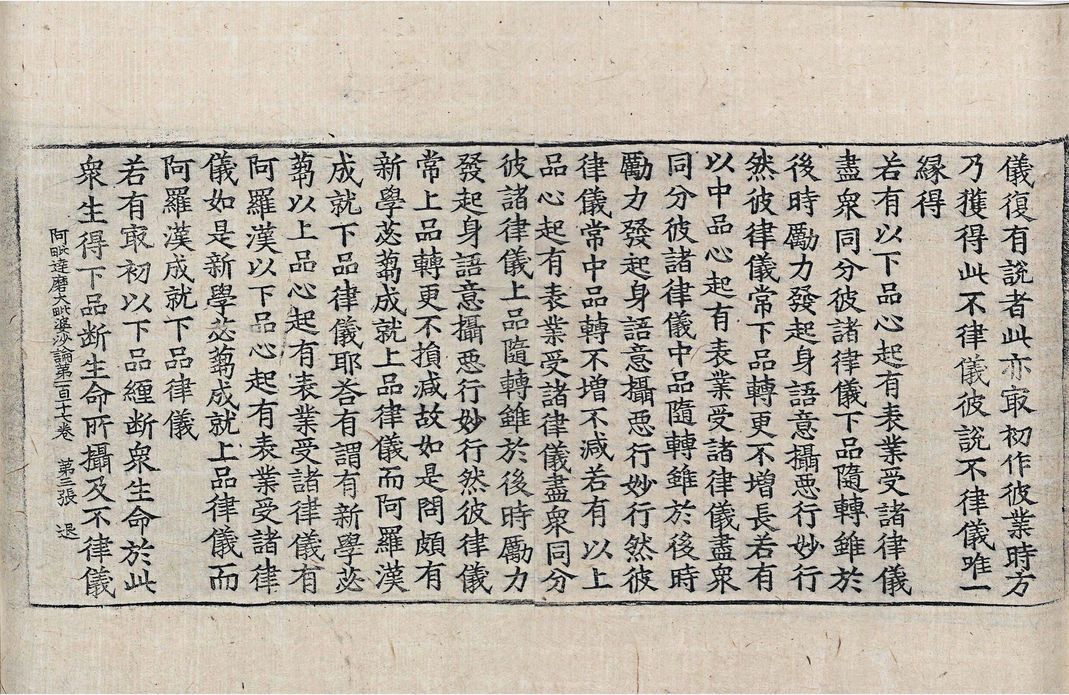 儀復有說者此亦㝡初作彼業時方
乃獲得此不律儀彼說不律儀唯一
緣得
若有以下品心起有表業受諸律儀
盡衆同分彼諸律儀下品隨轉雖於
後時勵力發起身語意攝惡行妙行
然彼律儀常下品轉更不增長若有
以中品心起有表業受諸律儀盡衆
同分彼諸律儀中品隨轉雖於後時
勵力發起身語意攝惡行妙行然彼
律儀常中品轉不增不減若有以上
品心起有表業受諸律儀盡衆同分
彼諸律儀上品隨轉雖於後時勵力
發起身語意攝惡行妙行然彼律儀
常上品轉更不損減故如是問頗有
新學苾蒭成就上品律儀而阿羅漢
成就下品律儀耶荅有謂有新學苾
蒭以上品心起有表業受諸律儀有
阿羅漢以下品心起有表業受諸律
儀如是新學苾蒭成就上品律儀而
阿羅漢成就下品律儀
若有㝡初以下品纏断衆生命於此
衆生得下品断生命所攝及不律儀
阿毗達磨大毗婆沙論第一百十七卷　第三張　退